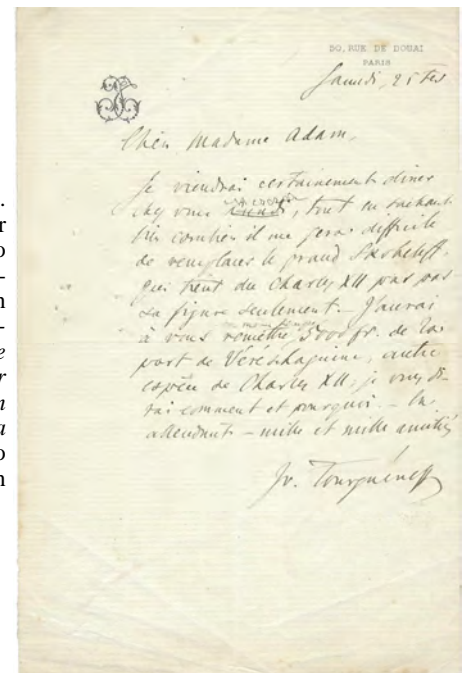 50, RUE DE DOUAI
PARIS
Samedi, 25 Fév
Chère Madame Adam,
Je viendrai certainement dîner
chez vous mercredi, tout en sachant
combien il me sera difficile
de remplacer le grand Skobeleff
qui tient du Charles XII par pas
sa figure seulement. – J'aurai
à vous remettre en même temps 5000 fr. de la
part de Vereschaguine, autre
espèce de Charles XII; je vous di-
rai comment et pourquoi. – En
attendant – mille et mille amitiés
Iv. Tourguéneff
.
r
o
-
n
-
e
r
n
a
o
n